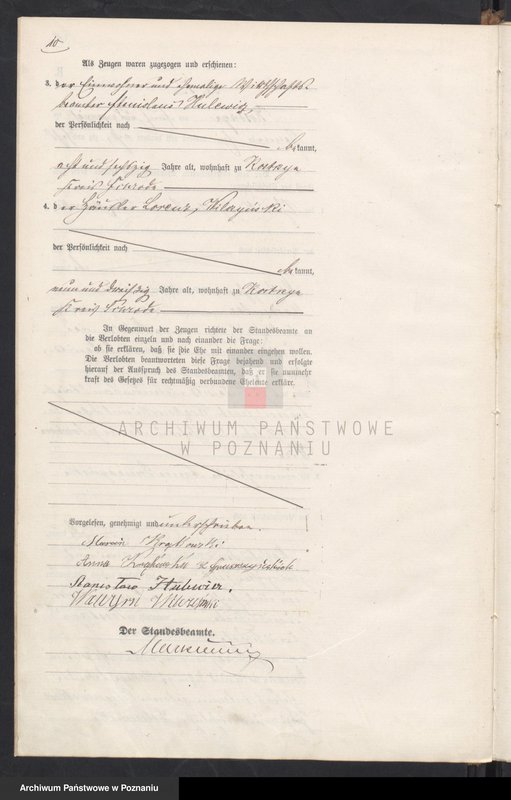 10
Als Zeugen waren zugezogen und erschienen:
3. der Einwohner und ehemalige Wirthschafts-
beamter Stanislaus Hulewicz
der Persönlichkeit nach
bekannt,
acht und sechszig Jahre alt, wohnhaft zu Kostrzyn
Kreis Schroda
4. der Häusler Lorenz Wilczyński
der Persönlichkeit nach
bekannt,
neun und dreißig Jahre alt, wohnhaft zu Kostrzyn
Kreis Schroda
In Gegenwart der Zeugen richtete der Standesbeamte an
die Verlobten einzeln und nach einander die Frage:
ob sie erklären, daß sie die Ehe mit einander eingehen wollen.
Die Verlobten beantworteten diese Frage bejahend und erfolgte
hierauf der Ausspruch des Standesbeamten, daß er sie nunmehr
kraft des Gesetzes für rechtmäßig verbundene Eheleute erkläre.
ARCHIWUM PAŃSTWOWE
W POZNANIU
Vorgelesen, genehmigt und unterschrieben.
Marcin
Anna
Stanisław Hulewicz.
Wawrzyn
Der Standesbeamte.
Archiwum Państwowe w Poznaniu